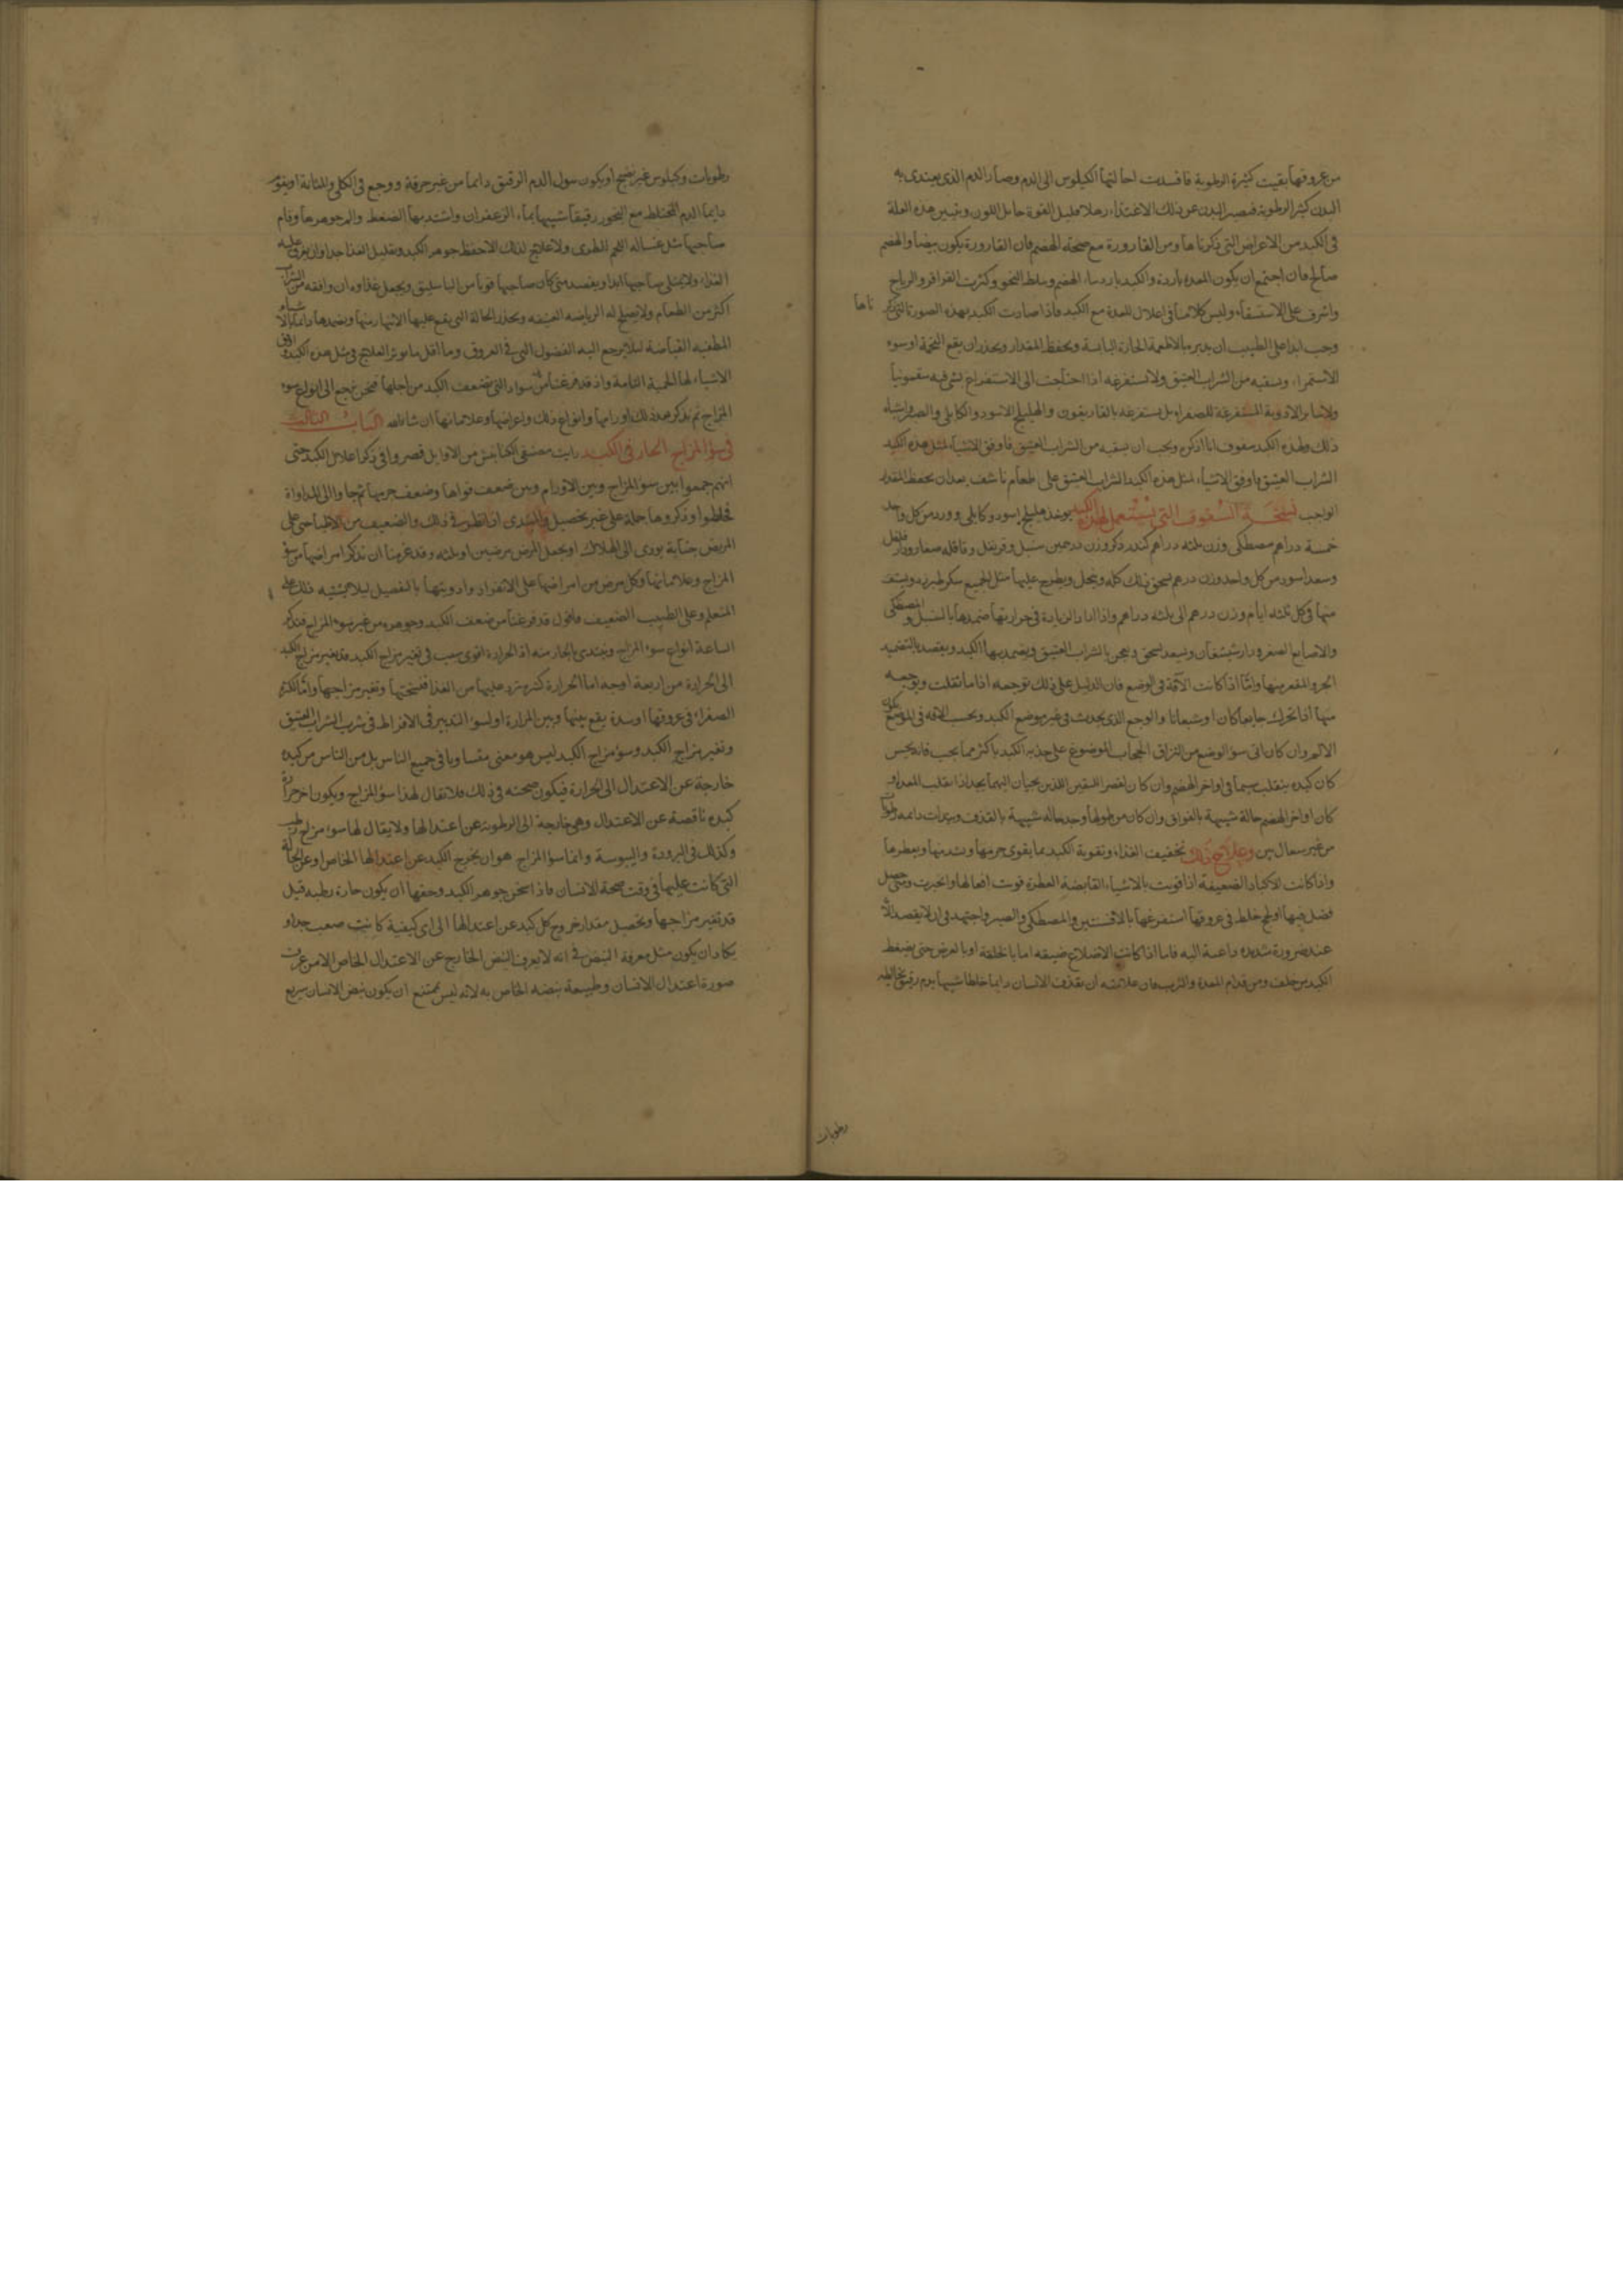 من عروقها بقيت كثيرة الرطوبة فافسدت احالتها الكيلوس الى الدم وصار الدم الذى يغتدى به
البدن كثير الرطوبة فيصير البدن عن ذلك الاغتذاء رهلا قليل القوة حايل اللون ويتبين هذه العلة
فى الكبد من الاعراض التى ذكرناها ومن القارورة مع صحة الهضم فان القارورة يكون بيضا والهضم
صالح فان اجتمع ان يكون المعدة باردة والكبد باردسا الهضم وسلط النحو وكثرت القراقر والرياح
واشرف على الاستسقاء وليس كلامنا فى اعلال المعدة مع الكبد فاذا صارت الكبد بهذه الصورة التى ذكر
ناها
وجب ابدا على الطبيب ان يدبره بالاطعمة الحارة اليابسة ويحفظ المقدار ويحذر ان يقع التخمة او سوء
الاستمراء ويسقيه من الشراب العتيق ولا تستفرغه اذا احتاجت الى الاستفراغ بشى فيه سقمونيا
ولا سابر الادوية المستفرغة للصفراء بل يستفرغه بالغاريقون والهليلج الاسود والكابلى والصبر واشباه
ذلك ولهذه الكبد سفوف انا اذكره ويجب ان يسقيه من الشراب العتيق فاوفق الاشياء لمثل هذه الكبد
الشراب العتيق واوفق الاشياء لمثل هذه الكبد الشراب العتيق على طعام ناشف بعد ان يحفظ المقدار
الواجب نسخة السفوف التى يستعمل لهذه الكبد يوخذ هليلج اسود وكابلى وورد من كل واحد
خمسة دراهم مصطكى وزن ثلثه دراهم كندر ذكر وزن درهمين سنبل وقرنفل وقاقله صغار ودار فلفل
وسعد اسود من كل واحد وزن درهم يسحق ذلك كله وينخل ويطرح عليها مثل الجميع سكر طبرزد ويستف
منها فى كل ثلثه ايام وزن درهم الى ثلثه دراهم واذا اراد الزيادة فى حرارتها ضمدها بالسنبل والمصطكى
والاصابع الصفر ودارشيشعان وسعد يسحق ويعجن بالشراب العتيق ويضمد بها الكبد ويقصد بالتضميد
الجزو المقعر منها واما اذا كانت الآفة فى الوضع فان الدليل على ذلك توجعه اذا ما ثقلت وتوجعه
منها اذا تحرك جايعا كان او شبعانا والوجع الذى يحدث فى غير موضع الكبد وبحسب الآفه فى الموضع يكون
الالم وان كان اتى سو الوضع من التزاق الحجاب الموضوع على حدبه الكبد باكثر مما يجب فانه يحس
كان كبده ينقلب سيما فى اواخر الهضم وان كان لقصر العنقين اللذين يجيان اليهما يجد اذا انقلبت المعدة او
كان اواخر الهضم حالة شبيهة بالفواق وان كان من طولها وجد حاله شبيهة بالقذف
من غير سعال بين وعلاج ذلك تخفيف الغذاء وتقوية الكبد بما يقوى جرمها ويشد منها ويعطرها
واذا كانت الاكباد الضعيفة اذا قويت بالاشياء القابضة العطرة قويت افعالها وانجبرت ومتى حصل
فضل فيها او لحج خلط فى عروقها استفرغها بالافسنتين والمصطكى والصبر واجتهد فى ان لا يقصد الا
عند ضرورة شديدة داعية اليه فاما اذا كانت الاضلاع ضيقه اما بالخلقة او بالعرض حتى يضغط
الكبد من خلف ومن قدام المعدة والثرب فان علامته ان يقذف الانسان دايما خلطا شبيها بدم رقيق يخالطه
رطوبات
رطوبات وكيلوس غير نضيج او يكون يبول الدم الرقيق دايما من غير حرقة ووجع فى الكلى والمثانة او يقوم
دايما الدم المختلط مع النحو رقيقا شبيها بماء الزعفران واشتد بها الضغط والم جوهرها وقام
صاحبها مثل غسالة اللحم الطرى ولا علاج لذلك الا حفظ جوهر الكبد وتقليل الغذا جدا وان يفرق عليه
الغذاء ولا يمتلى صاحبها ابدا ويفصد متى كان صاحبها قويا من الباسليق ويجعل غذاوه ان وافقه من الشراب
اكثر من الطعام ولا يصلح له الرياضه العنيفه ويحذر الحالة التى يقع عليها الانبهار منها ويضمدها دايما بالاشياء
المطفيه القباضة ليلا يرجع اليه الفضول التى فى العروق وما اقل ما يوثر العلاج فى مثل هذه الكبد واوفق
الاشياء لها الحمية التامة واذ قد فرغنا من سواد التى تضعف الكبد من اجلها فنحن نرجع الى انواع سوء
المزاج ثم نذكر بعد ذلك اورامها وانواع ذلك واعراضها وعلاماتها ان شا الله الباب الثالث
فى سؤ المزاج الحار فى الكبد رايت مصنفى الكنانيش من الاوايل قصروا فى ذكر اعلال الكبد حتى
انهم جمعوا بين سؤ المزاج وبين الاورام وبين ضعف قواها وضعف جرمها ثم جاوا الى المداواة
فخلطوا وذكروها جملة على غير تحصيل والمبتدى اذا نظر فى ذلك والضعيف من الاطبا جنى على
المريض جناية يودى الى الهلاك او يجعل المرض مرضين او ثلثه وقد عزمنا ان نذكر امراضها من سؤ
المزاج وعلاماتها وكل مرض من امراضها على الانفراد وادويتها بالتفصيل ليلا يشتبه ذلك على
المتعلم وعلى الطبيب الضعيف فاقول قد فرغنا من ضعف الكبد وجوهره من غير سوء المزاج فنذكر
الساعة انواع سوء المزاج ونبتدى بالحار منه اذ الحرارة اقوى سبب فى تغير مزاج الكبد فتغير مزاج الكبد
الى الحرارة من اربعة اوجه اما الحرارة كثيره ترد عليها من الغذا فسخنتها وتغير مزاجها واما لكثرة
الصفراء فى عروقها او سدة يقع بينها وبين المرارة او لسوء التدبير فى الافراط فى شرب الشراب العتيق
وتغير مزاج الكبد وسوء مزاج الكبد ليس هو معنى متساويا فى جميع الناس بل من الناس من كبده
خارجة عن الاعتدال الى الحرارة فيكون صحته فى ذلك فلا تقال لهذا سؤ المزاج ويكون اخر حرارة
كبده ناقصة عن الاعتدال وهى خارجة الى الرطوبة عن اعتدالها ولا يقال لها سوء مزاج رطب
وكذلك فى البرودة واليبوسة وانما سؤ المزاج هو ان يخرج الكبد عن اعتدالها الخاص او عن الحالة
التى كانت عليها فى وقت صحة الانسان فاذا سخن جوهر الكبد وحقها ان يكون حارة رطبه قيل
قد تغير مزاجها وتحصيل مقدار خروج كل كبد عن اعتدالها الى اى كيفية كانت صعب جدا و
يكاد ان يكون مثل معرفة النبض فى انه لا يعرف النبض الخارج عن الاعتدال الخاص الا من عرف
صورة اعتدال الانسان وطبيعة نبضه الخاص به لانه ليس يمتنع ان يكون نبض الانسان سريع